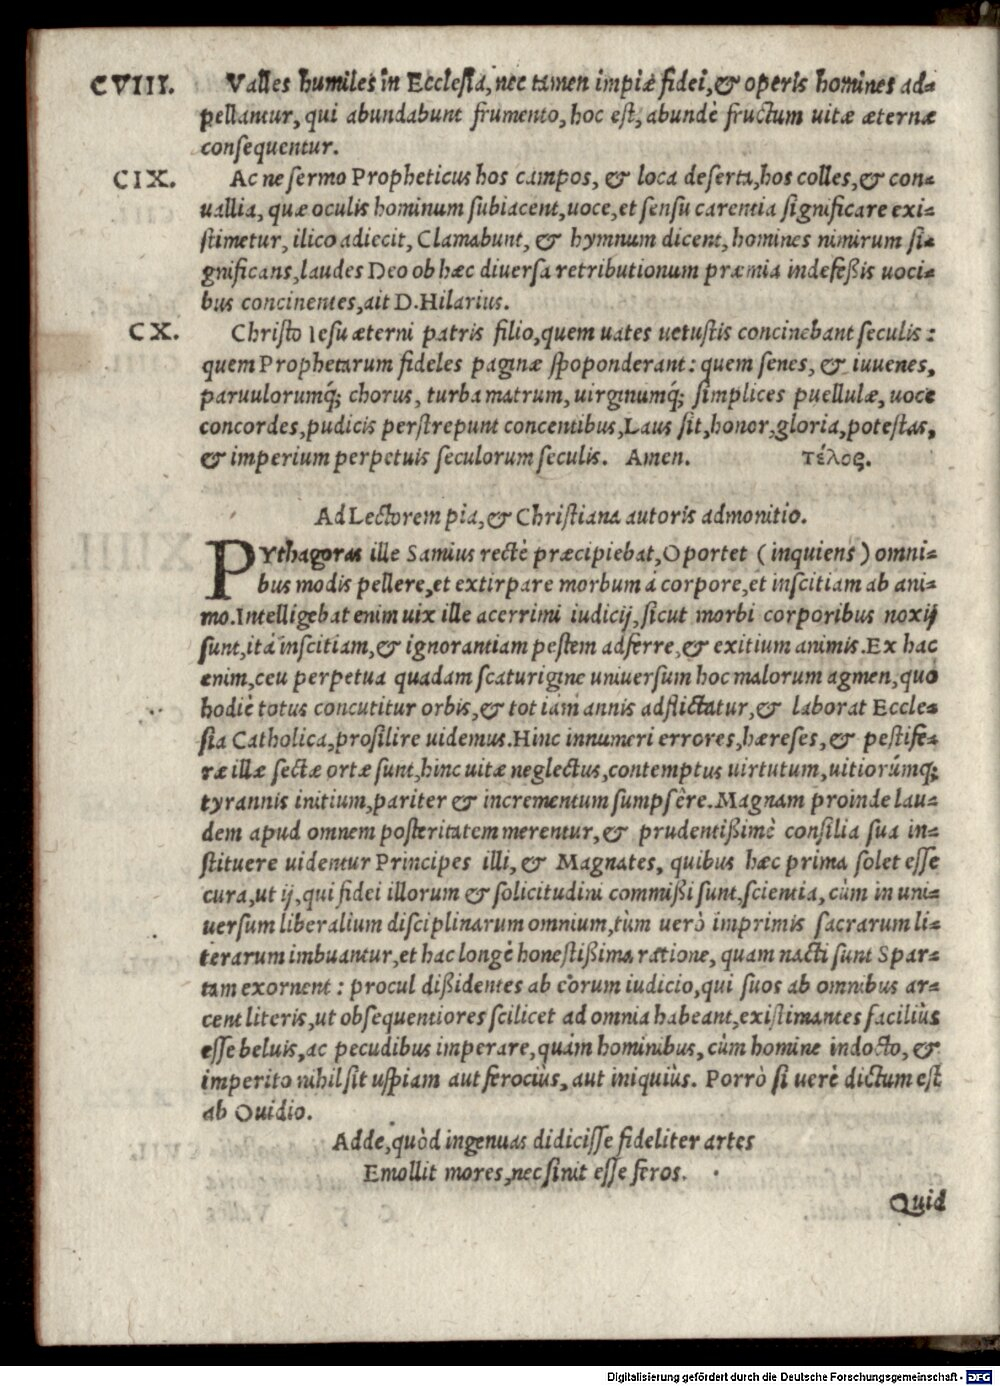 CVIII. Valles humiles in Ecclesia, nec tamen impiæ fidei, & operis homines ad=
pellantur, qui abundabunt frumento, hoc est, abundè fructum uitæ æternæ
consequentur.
CIX. Ac ne sermo Propheticus hos campos, & loca deserta, hos colles, & con=
uallia, quæ oculis hominum subiacent, uoce, et sensu carentia significare exi=
stimetur, ilico adiecit, Clamabunt, & hymnum dicent, homines nimirum si=
gnificans, laudes Deo ob hæc diuersa retributionum præmia indefeßis uoci=
bus concinentes, ait D. Hilarius.
CX. Christo Iesu æterni patris filio, quem uates uetustis concinebant seculis:
quem Prophetarum fideles paginæ spoponderant: quem senes, & iuuenes,
paruulorumq́; chorus, turba matrum, uirginumq́; simplices puellulæ, uoce
concordes, pudicis perstrepunt concentibus, Laus sit, honor, gloria, potestas,
& imperium perpetuis seculorum seculis. Amen. τέλος.
Ad Lectorem pia, & Christiana autoris admonitio.
PYthagoras ille Samius rectè præcipiebat, Oportet (inquiens) omni=
bus modis pellere, et extirpare morbum á corpore, et inscitiam ab ani=
mo. Intelligebat enim uix ille acerrimi iudicij, sicut morbi corporibus noxij
sunt, ità inscitiam, & ignorantiam pestem adferre, & exitium animis. Ex hac
enim, ceu perpetua quadam scaturigine uniuersum hoc malorum agmen, quo
hodiè totus concutitur orbis, & tot iám annis adflictatur, & laborat Eccle=
sia Catholica, prosilire uidemus. Hinc innumeri errores, hæreses, & pestife=
ræ illæ sectæ ortæ sunt, hinc uitæ neglectus, contemptus uirtutum, uitiorúmq;
tyrannis initium, pariter & incrementum sumpsêre. Magnam proinde lau=
dem apud omnem posteritatem merentur, & prudentißimè consilia sua in=
stituere uidentur Principes illi, & Magnates, quibus hæc prima solet esse
cura, ut ij, qui fidei illorum & solicitudini commißi sunt, scientia, cùm in uni=
uersum liberalium disciplinarum omnium, tùm uerò imprimis sacrarum li=
terarum imbuantur, et hac longè honestißima ratione, quam nacti sunt Spar=
tam exornent: procul dißidentes ab eorum iudicio, qui suos ab omnibus ar=
cent literis, ut obsequentiores scilicet ad omnia habeant, existimantes faciliùs
esse beluis, ac pecudibus imperare, quàm hominibus, cùm homine indocto, &
imperito nihil sit uspiam aut ferociùs, aut iniquiùs. Porrò si uerè dictum est
ab Ouidio.
Adde, quòd ingenuas didicisse fideliter artes
Emollit mores, nec sinit esse feros.
Quid
Digitalisierung gefördert durch die Deutsche Forschungsgemeinschaft - DFG